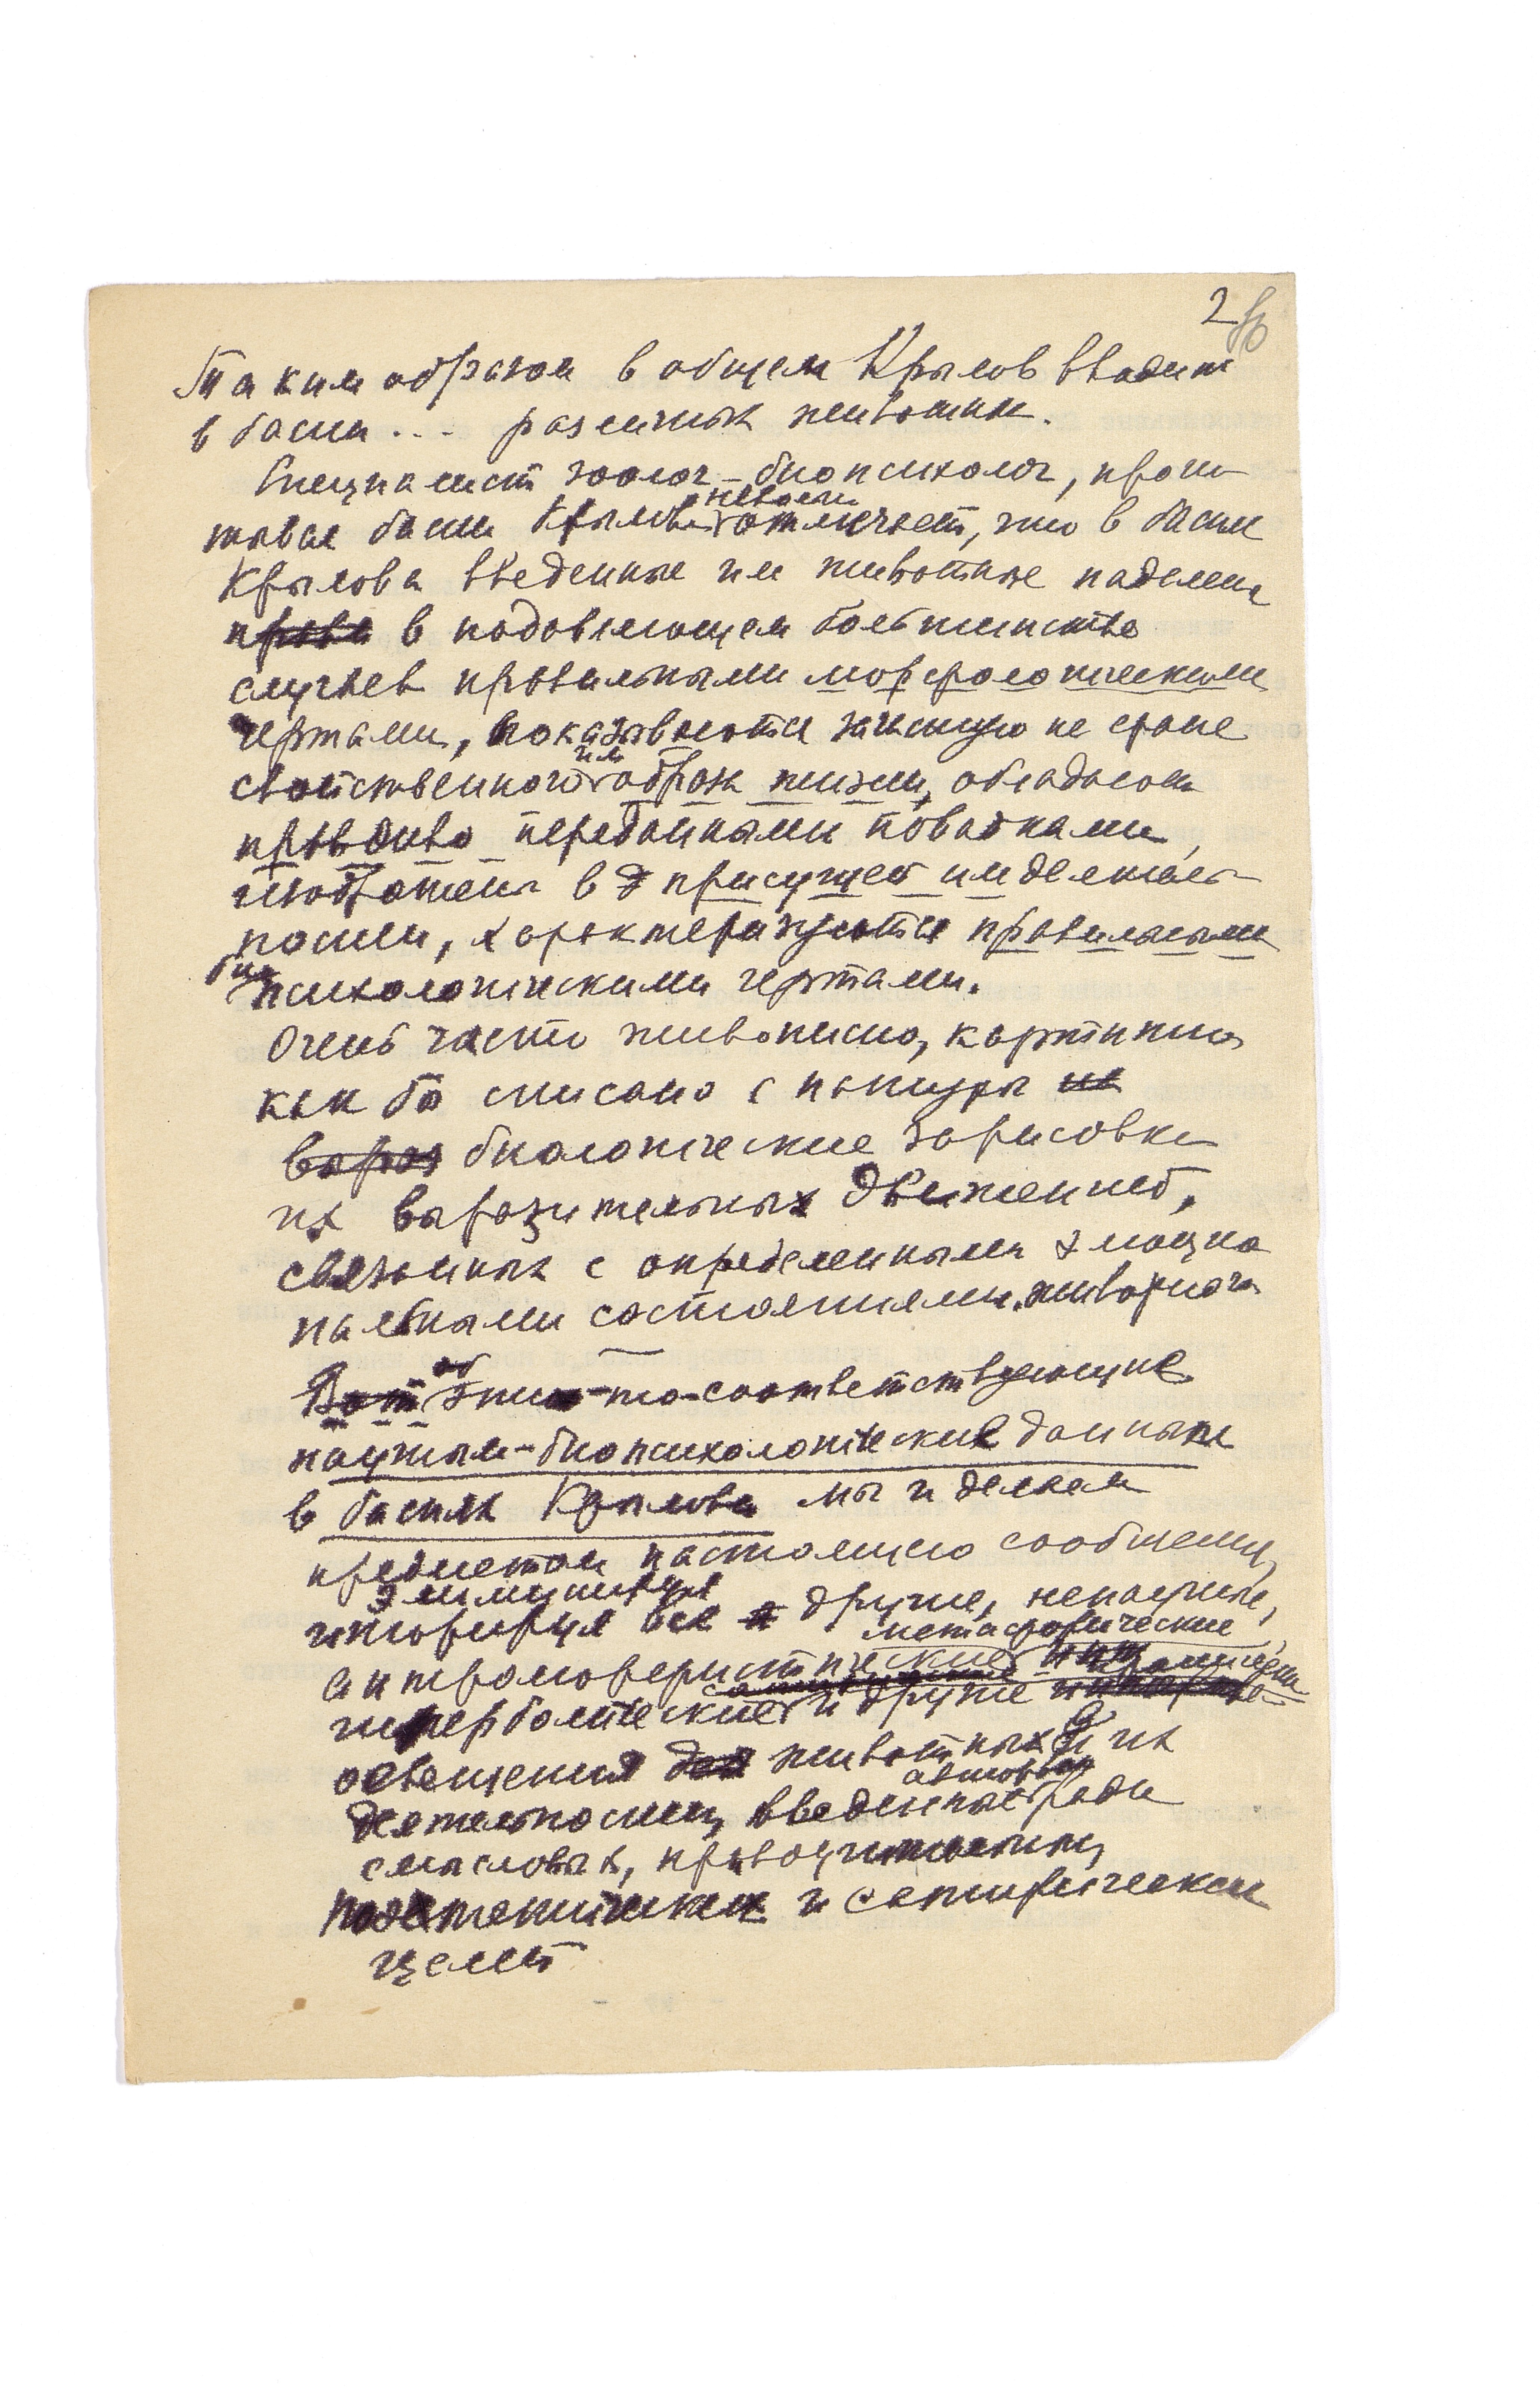 2
Таким образом в общем Крылов вводит
в басни ... различных животных.
Специалист зоолог-биопсихолог, прочи-
тывая басни Крылова невольно отмечает, что в баснях
Крылова введенные им животные наделены
в подавляющем большинстве
случаев правильными морфологическими
чертами, показываются зачастую на фоне
свойственного им образа жизни, обладают
правдиво переданными повадками,
изображены в присущей им деятель-
ности, характеризуются правильными
био
психологическими чертами.
Очень часто живописно, картинно
как бы списано с натуры
биологические зарисовки
их выразительных движений,
связанных с определенными эмоцио
нальными состояниями животного
Вот об этих-то соответствующие
научным-биопсихологические данные
в баснях Крылова мы и делаем
предметом настоящего сообщения,
элиминируя
игнорируя все другие, ненаучные,
метафорические
антропоморфистические
гиперболические и другие
освещения животных и их
деятельности, введенные автором ради
смысловых, нравоучительных,
и сатирических
целей